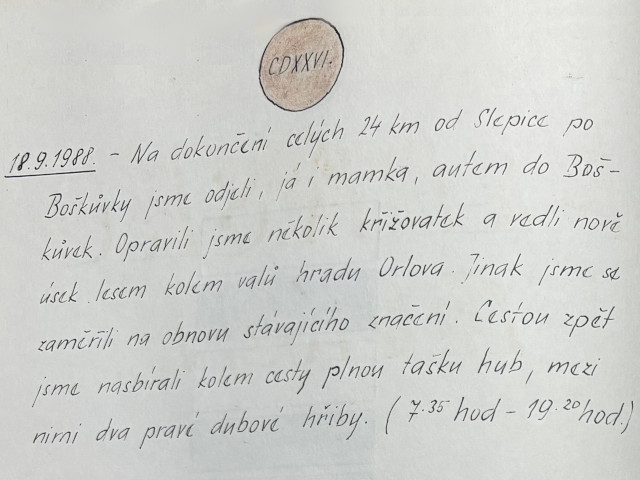 CDXXVI.
18.9.1988. - Na dokončení celých 24 km od Slepice po
Boškůvky jsme odjeli, já i mamka, autem do Boš-
kůvek. Opravili jsme několik křižovatek a vedli nově
úsek lesem kolem valů hradu Orlova. Jinak jsme se
zaměřili na obnovu stávajícího značení. Cestou zpět
jsme nasbírali kolem cesty plnou tašku hub, mezi
nimi dva pravé dubové hřiby. (7.35 hod - 19.20 hod.)